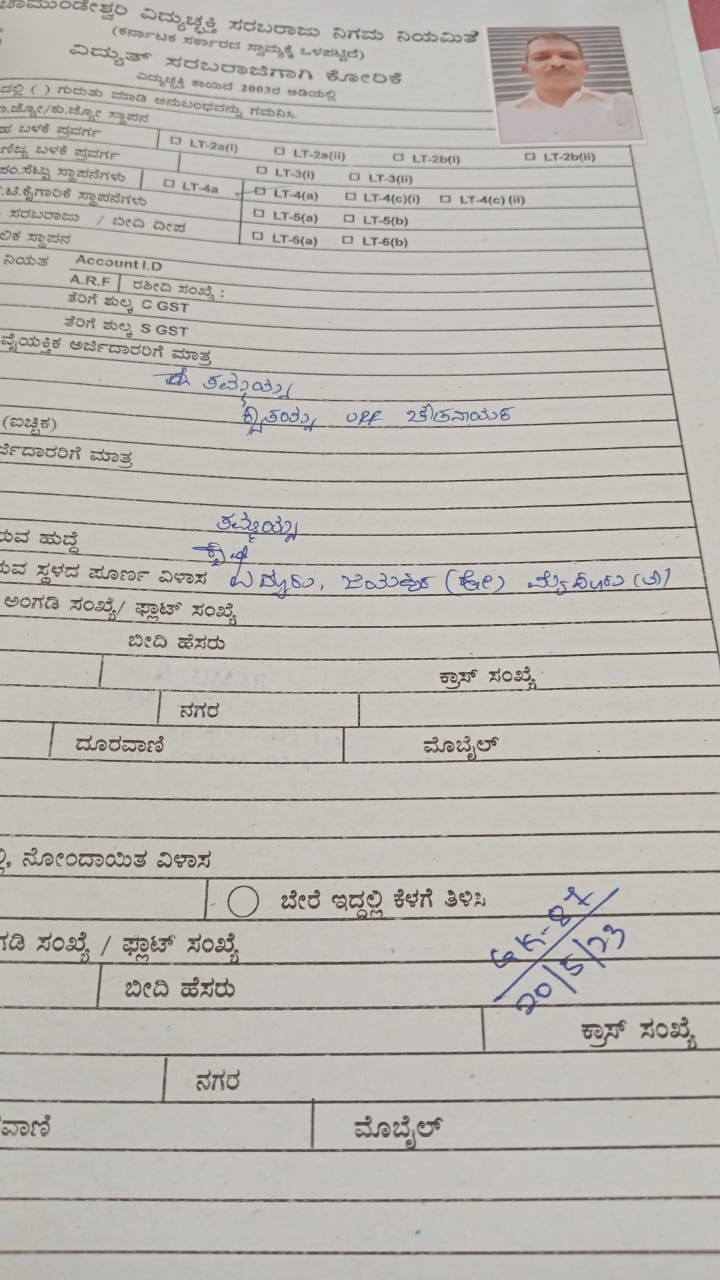 ಚಾಮುಂಡೇಶ್ವರಿ ವಿದ್ಯುಚ್ಛಕ್ತಿ ಸರಬರಾಜು ನಿಗಮ ನಿಯಮಿತ
(ಕರ್ನಾಟಕ ಸರ್ಕಾರದ ಸ್ವಾಮ್ಯಕ್ಕೆ ಒಳಪಟ್ಟಿದೆ)
ವಿದ್ಯುತ್ ಸರಬರಾಜಿಗಾಗಿ ಕೋರಿಕೆ
ವಿದ್ಯುಚ್ಛಕ್ತಿ ಕಾಯಿದೆ 2003ರ ಅಡಿಯಲ್ಲಿ
ದಲ್ಲಿ ( ) ಗುರುತು ಮಾಡಿ ಅನುಬಂಧವನ್ನು ಗಮನಿಸಿ.
ಸ್ಥಾಪನ
ಬಳಕೆ ಪ್ರವರ್ಗ LT-2a(i) LT-2a(ii) LT-2b(i) LT-2b(ii)
ಬಳಕೆ ಪ್ರವರ್ಗ LT-3(i) LT-3(ii)
ಪಂ.ಸೆಟ್ಟು ಸ್ಥಾಪನೆಗಳು LT-4a LT-4(a) LT-4(c)(i) LT-4(c) (ii)
ಕೈಗಾರಿಕೆ ಸ್ಥಾಪನೆಗಳು LT-5(a) LT-5(b)
ಸರಬರಾಜು / ಬೀದಿ ದೀಪ LT-6(a) LT-6(b)
ಲಿಕ ಸ್ಥಾಪನ
ನಿಯತ Account I.D
A.R.F ರಶೀದಿ ಸಂಖ್ಯೆ :
ತೆರಿಗೆ ಶುಲ್ಕ C GST
ತೆರಿಗೆ ಶುಲ್ಕ S GST
ವೈಯಕ್ತಿಕ ಅರ್ಜಿದಾರರಿಗೆ ಮಾತ್ರ
ತಮ್ಮಯ್ಯ
(ಐಚ್ಛಿಕ)
ರ್ಜಿದಾರರಿಗೆ ಮಾತ್ರ
ತಮ್ಮಯ್ಯ
ರುವ ಹುದ್ದೆ
ರುವ ಸ್ಥಳದ ಪೂರ್ಣ ವಿಳಾಸ
ಅಂಗಡಿ ಸಂಖ್ಯೆ/ ಫ್ಲಾಟ್ ಸಂಖ್ಯೆ
ಬೀದಿ ಹೆಸರು
ಕ್ರಾಸ್ ಸಂಖ್ಯೆ
ನಗರ
ದೂರವಾಣಿ ಮೊಬೈಲ್
ಲ್ಲಿ, ನೋಂದಾಯಿತ ವಿಳಾಸ
ಬೇರೆ ಇದ್ದಲ್ಲಿ ಕೆಳಗೆ ತಿಳಿಸಿ
20/5/23
ಗಡಿ ಸಂಖ್ಯೆ / ಫ್ಲಾಟ್ ಸಂಖ್ಯೆ
ಬೀದಿ ಹೆಸರು
ಕ್ರಾಸ್ ಸಂಖ್ಯೆ
ನಗರ
ವಾಣಿ ಮೊಬೈಲ್